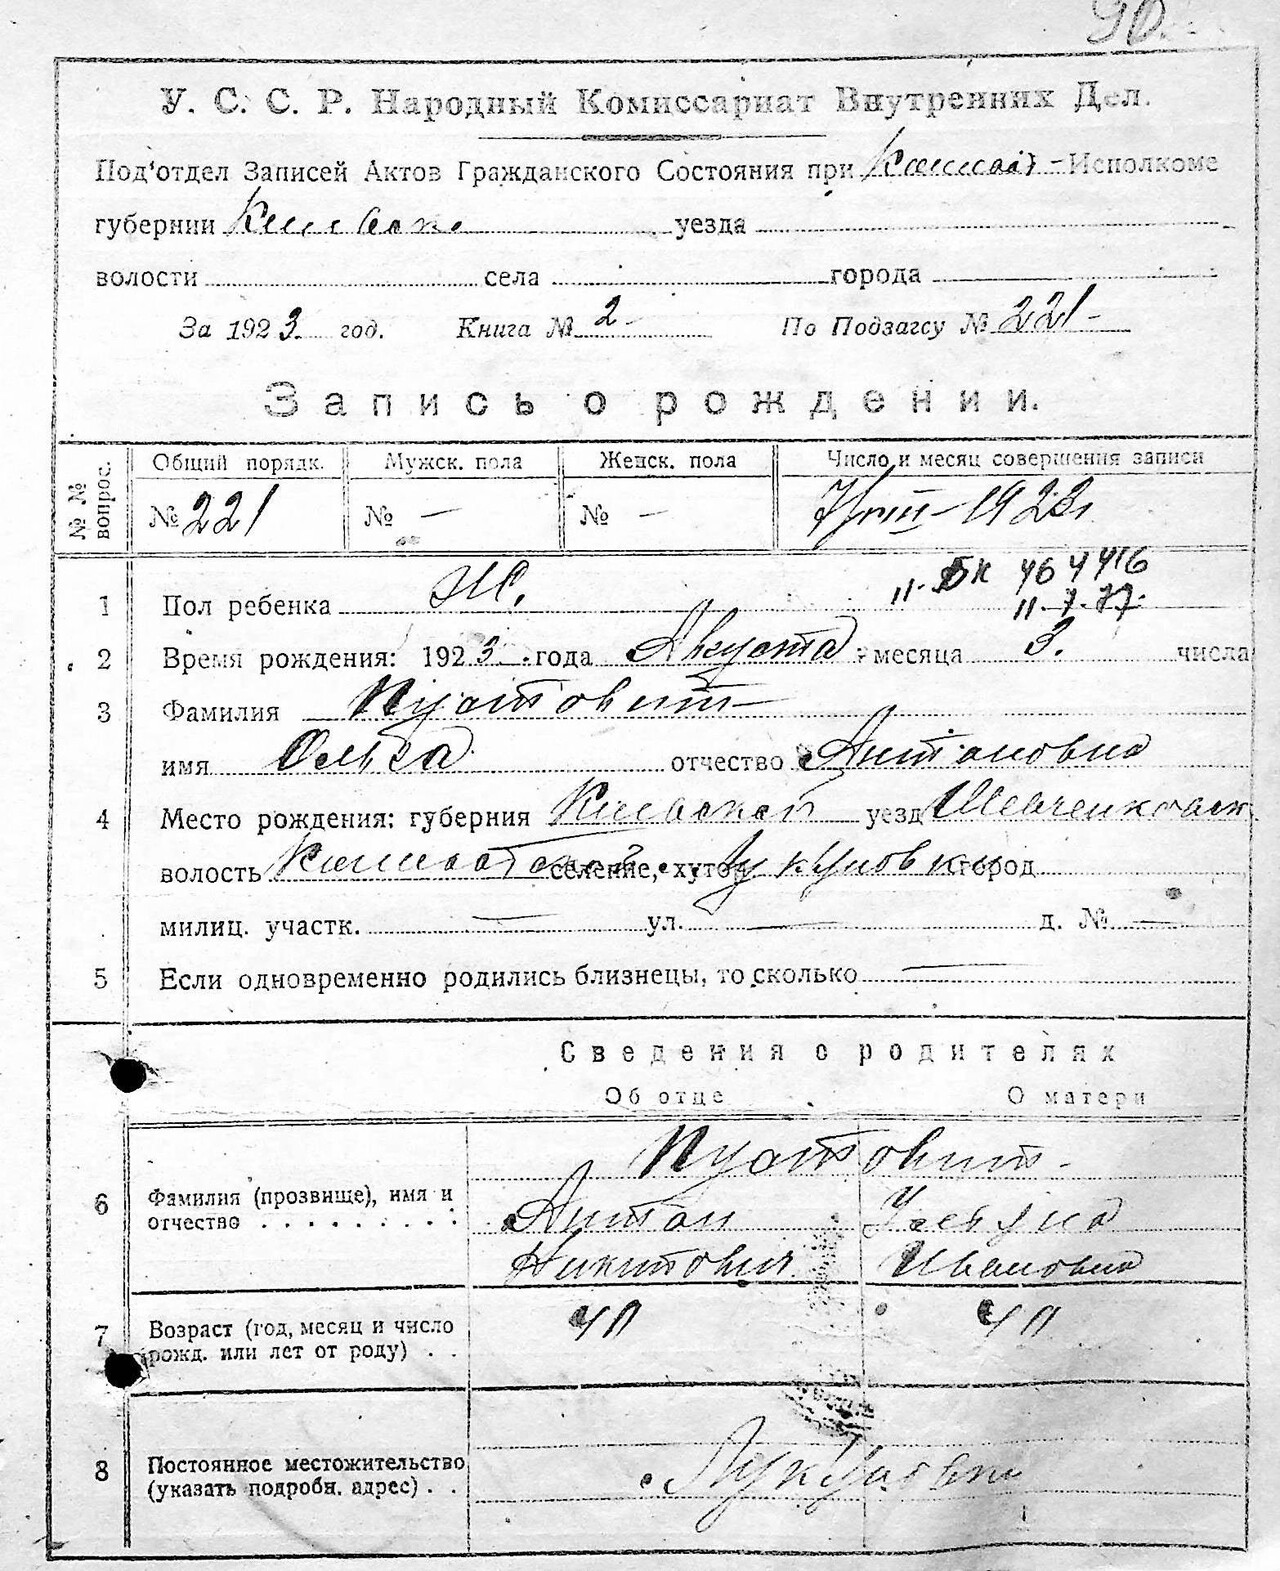 90.
У. С. С. Р. Народный Комиссариат Внутренних Дел.
Под'отдел Записей Актов Гражданского Состояния при Исполкоме
губернии Киевско уезда
волости села города
За 1923 год. Книга № 2 - По Подзагсу № 221 -
Запись о рождении.
№ № вопрос.
Общий порядк. Мужск. пола Женск. пола Число и месяц совершения записи
№ 221 № — № — 7/VIII - 1923
II-БК 464416
1 Пол ребенка Ж. 11.7.77.
2 Время рождения: 1923 года Августа месяца 3. числа
3 Фамилия Пустовит
имя Ольга отчество Антоновна
4 Место рождения: губерния Киевской уезд Шевченковск
волость селение, хутор город
милиц. участк. — ул. — д. № —
5 Если одновременно родились близнецы, то сколько —
Сведения о родителях
Об отце О матери
Пустовит
6 Фамилия (прозвище), имя и Антон Ульяна
отчество . . . . . . . . . Никитович Ивановна
7 Возраст (год, месяц и число 40 40
рожд. или лет от роду) . .
8 Постоянное местожительство
(указать подробн. адрес) . .